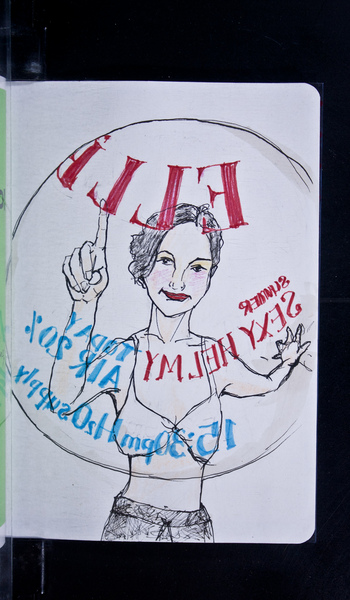 ELLE
SUMMER
SEXY HELMY
TODAY
AIR 90%
15:30pm H2O supply